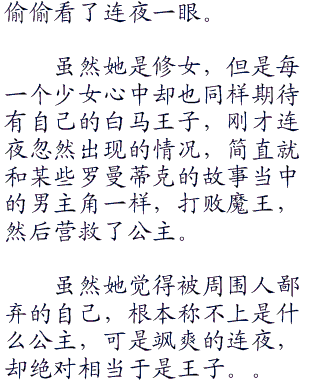 偷偷看了连夜一眼。
虽然她是修女，但是每
一个少女心中却也同样期待
有自己的白马王子，刚才连
夜忽然出现的情况，简直就
和某些罗曼蒂克的故事当中
的男主角一样，打败魔王，
然后营救了公主。
虽然她觉得被周围人鄙
弃的自己，根本称不上是什
么公主，可是飒爽的连夜，
却绝对相当于是王子。。